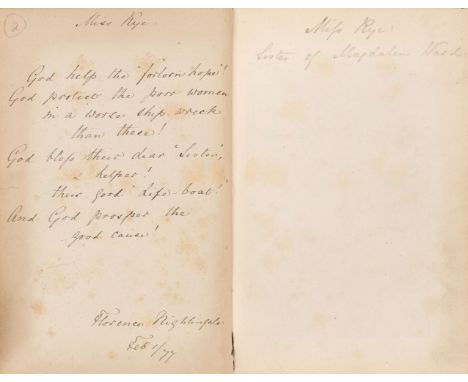 2
Miss Rye
God help the 'forlorn hope'!
God protect the poor women
in a worse ship-wreck
than these!
God bless their dear 'Sister',
& helper!
their good 'Life-boat!'
And God prosper the
good cause!
Florence Nightingale
Feb 1/77
Miss Rye
Sister of Magdalen Ward